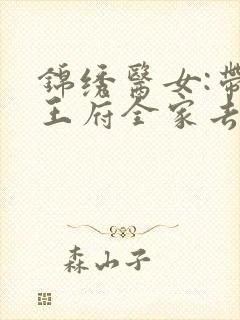 錦绣醫女:帶
王府全家去
森山子